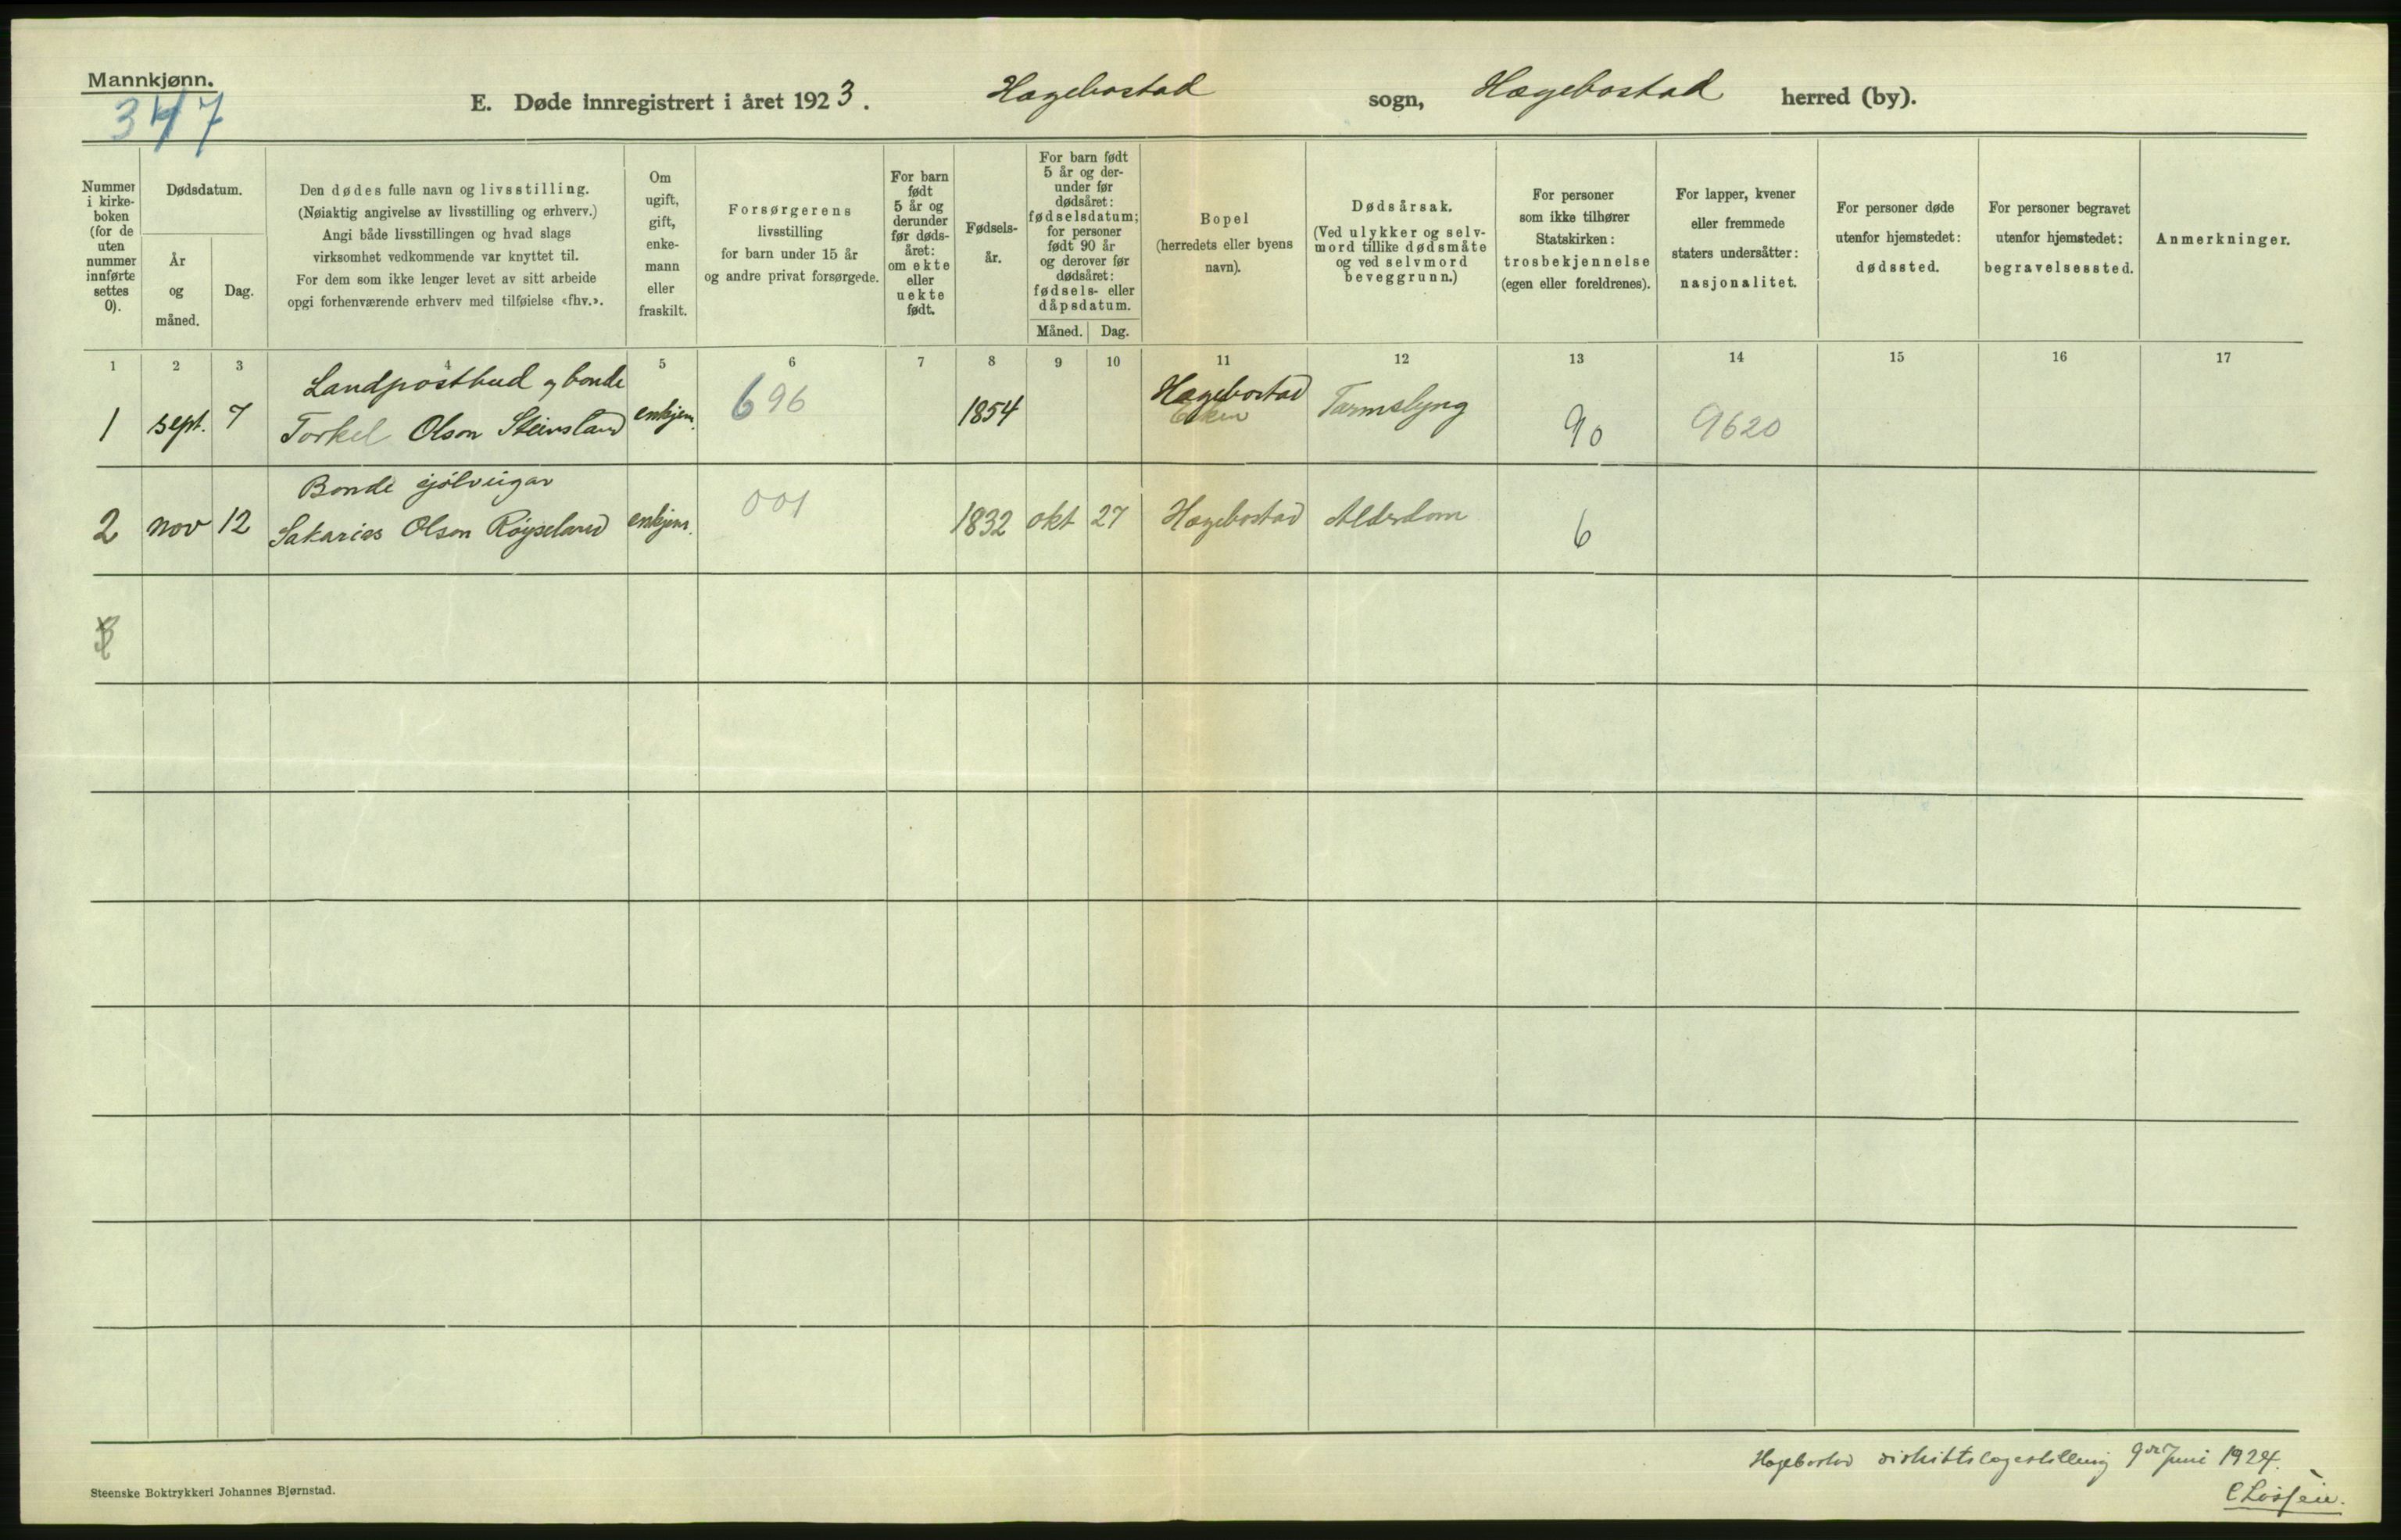 Mannkjønn.
347
E. Døde innregistrert i året 1923. Hægebostad sogn, Hægebostad herred (by).
Nummer
i kirke-
boken
(for de
uten
nummer
innførte
settes
0).
Dødsdatum.
År
og
måned.
Dag.
Den dødes fulle navn og livsstilling.
(Nøiaktig angivelse av livsstilling og erhverv.)
Angi både livsstillingen og hvad slags
virksomhet vedkommende var knyttet til.
For dem som ikke lenger levet av sitt arbeide
opgi forhenværende erhverv med tilføielse «fhv.».
Om
ugift,
gift,
enke-
mann
eller
fraskilt.
Forsørgerens
livsstilling
for barn under 15 år
og andre privat forsørgede.
For barn
født
5 år og
derunder
før døds-
året:
om ekte
eller
uekte
født.
Fødsels-
år.
For barn født
5 år og der-
under før
dødsåret:
fødselsdatum;
for personer
født 90 år
og derover før
dødsåret:
fødsels- eller
dåpsdatum.
Måned. Dag.
Bopel
(herredets eller byens
navn).
Dødsårsak.
(Ved ulykker og selv-
mord tillike dødsmåte
og ved selvmord
beveggrunn.)
For personer
som ikke tilhører
Statskirken:
trosbekjennelse
(egen eller foreldrenes).
For lapper, kvener
eller fremmede
staters undersåtter:
nasjonalitet.
For personer døde
utenfor hjemstedet:
dødssted.
For personer begravet
utenfor hjemstedet:
begravelsessted.
Anmerkninger.
1 2 3 4 5 6 7 8 9 10 11 12 13 14 15 16 17
Landpostbud og bonde Hægebostad
1 sept. 7 Torkel Olson Steinsland enkjem. 696 1854 Tarmslyng 90 9620
Bonde sjølveigar
2 nov 12 Sakarias Olson Røyseland enkjem. 001 1832 okt 27 Hægebostad Alderdom 6
3
Hægebostad distriktslægestilling 9de Juni 1924.
Steenske Boktrykkeri Johannes Bjørnstad.